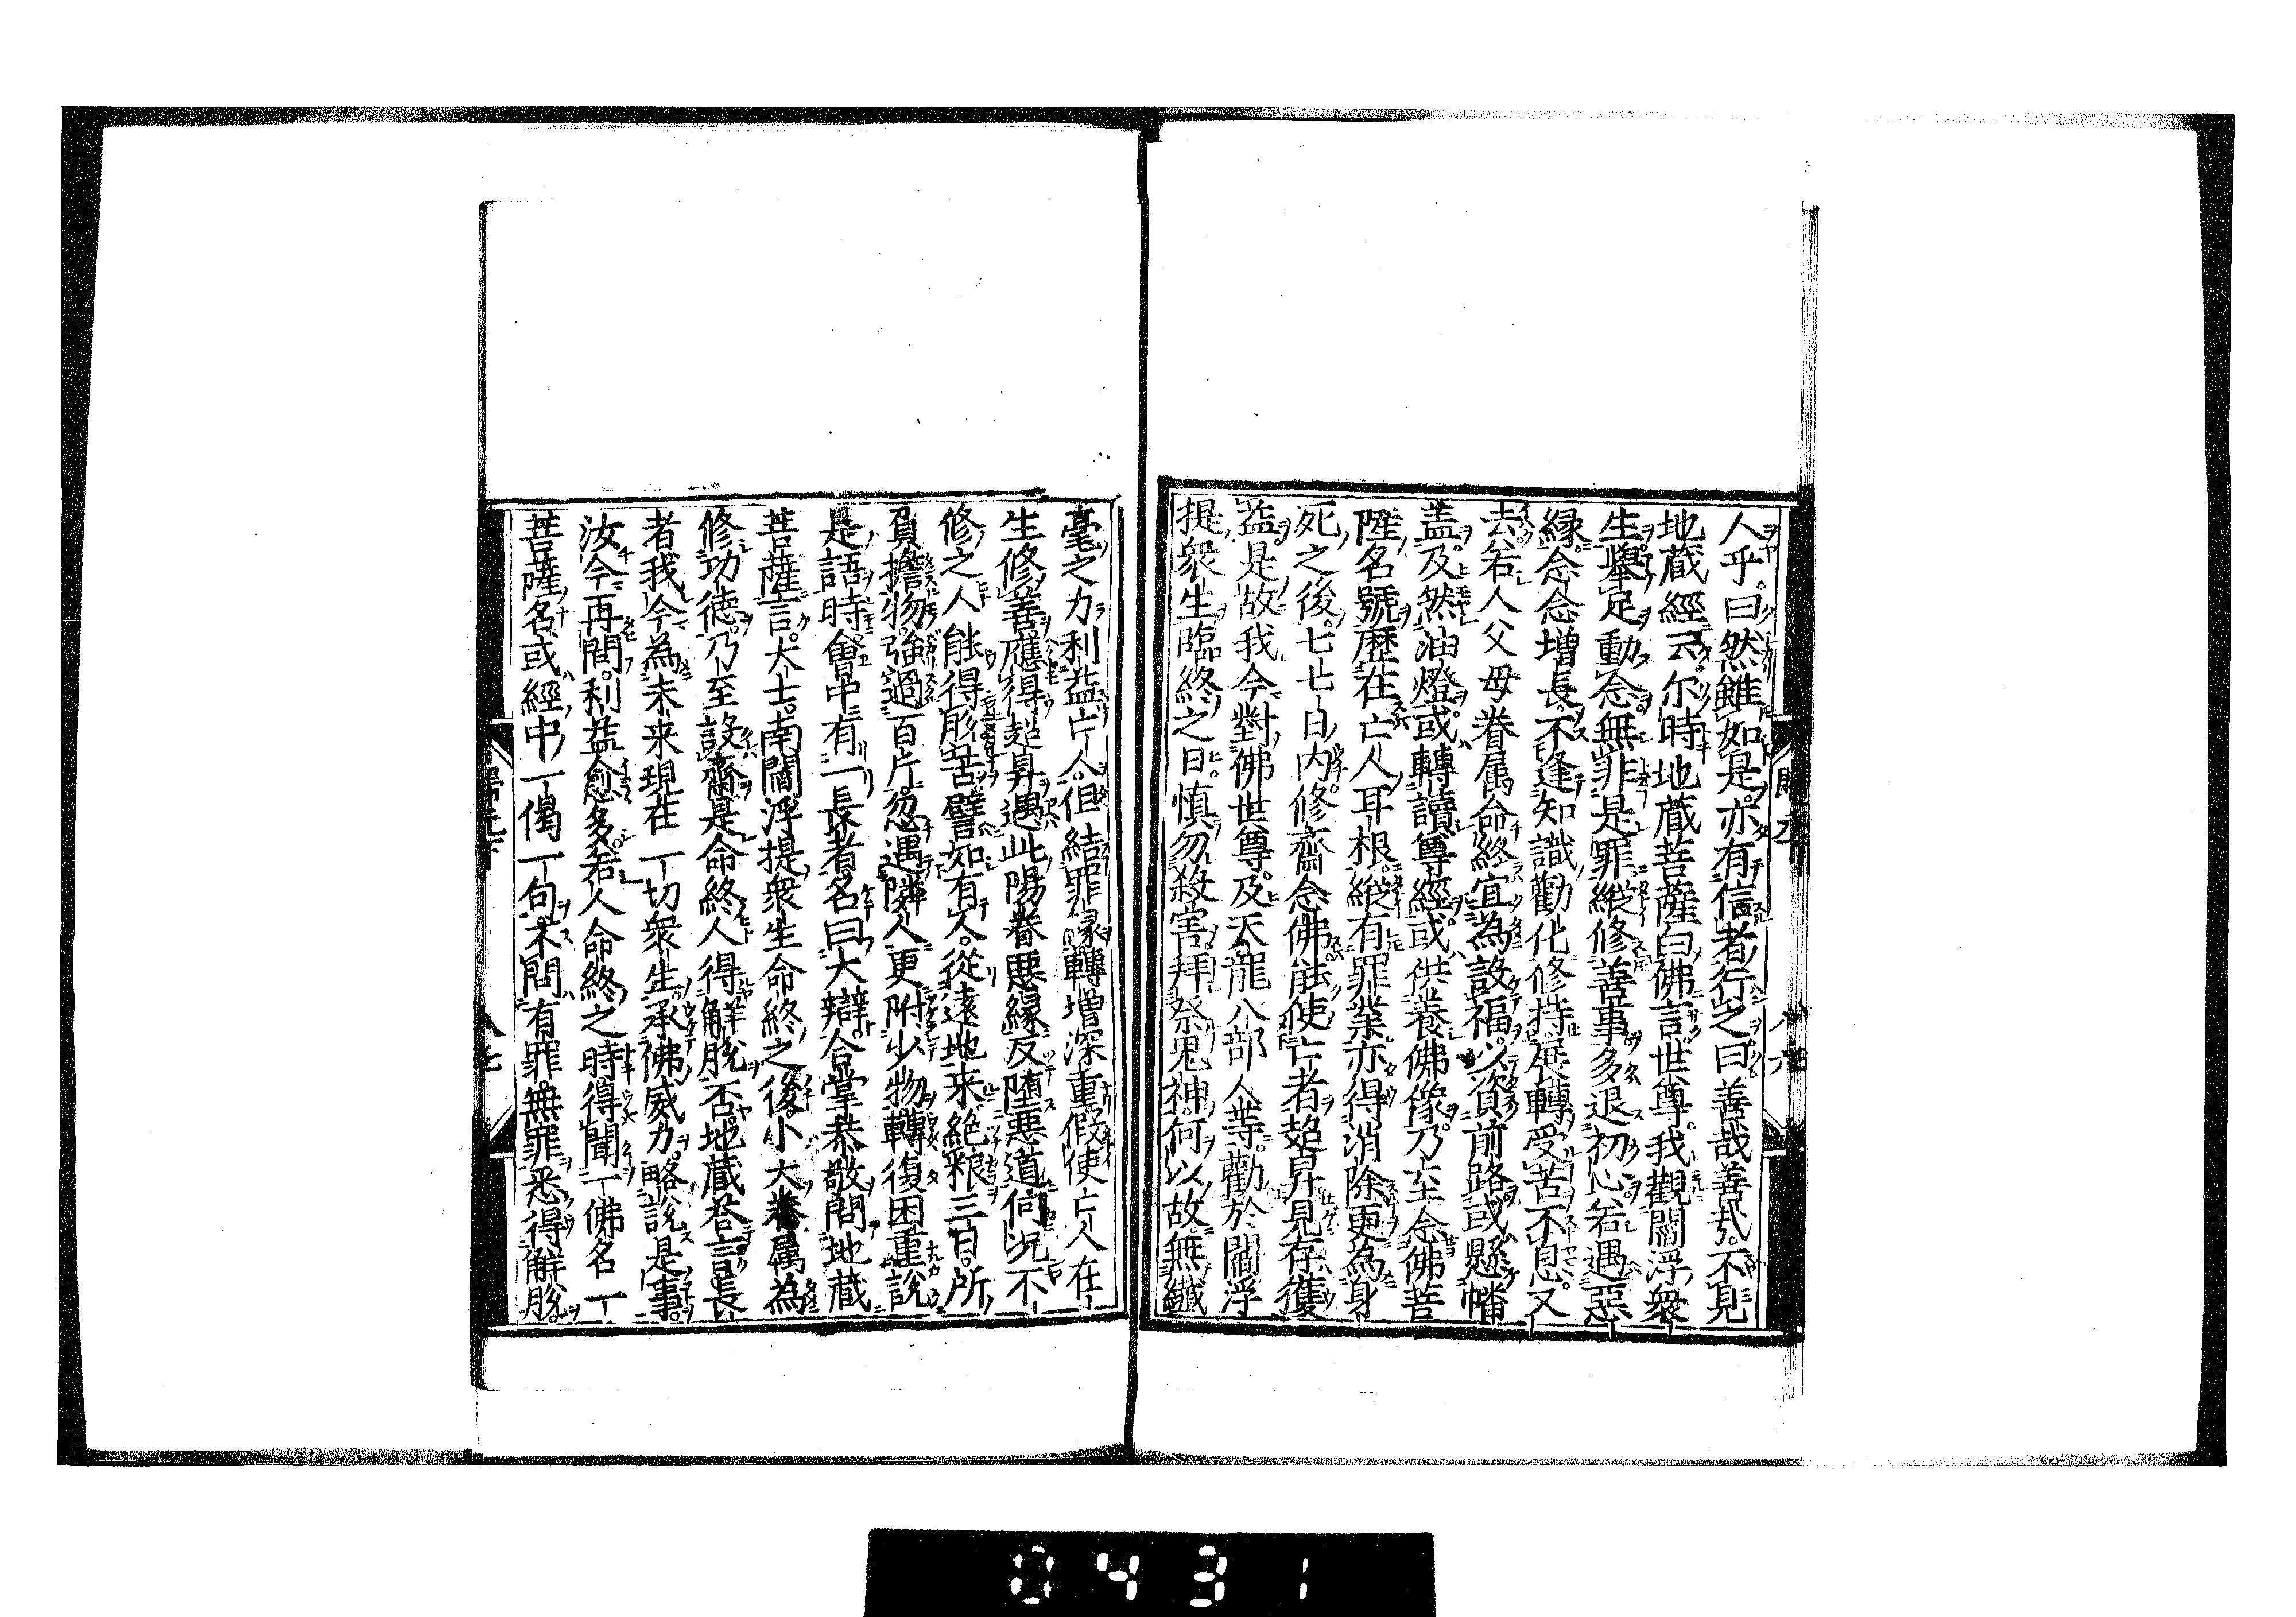 人乎。曰然雖如是。亦有信者行之。曰善哉善哉。不見
地蔵經云尓時地蔵菩薩白佛言世尊。我觀閻浮衆
生舉足動念無非是罪縱修善事多退初心若遇惡
縁念念増長不逢知識勸化修持展轉受苦不息。又
去若人父母眷属命終宜為設福。以資前路或懸幡
盖及然油燈或轉讀尊經或供養佛像乃至念佛菩
薩名號歴在亡人耳根縱有罪業亦得消除更為身
死之後。七七日内修齋念佛能使亡者超昇見存獲
益。是故我今對佛世尊及天龍八部人等。勸於閻浮
提衆生臨終之日。慎勿殺害拜祭鬼神。何以故無纖
毫之力利益亡人。但結罪縁轉増深重假使亡人在
生修善應得超昇遇此陽眷惡縁反堕惡道何况不
修之人能得脱苦譬如有人。從遠地来絶粮三日。所
負擔物強過百斤忽遇隣人更附少物轉復困重說
是語時會中有一長者名曰大辯。合掌恭敬問地蔵
菩薩言。大士。南閻浮提衆生命終之後小大眷属為
修功徳乃至設齋是命終人得解脱否。地蔵荅言長
者我今為未来現在一切衆生。承佛威力。略說是事。
汝今再問。利益愈多。若人命終之時得聞一佛名一
菩薩名或經中一偈一句。不問有罪無罪悉得解脱。
八七
0431